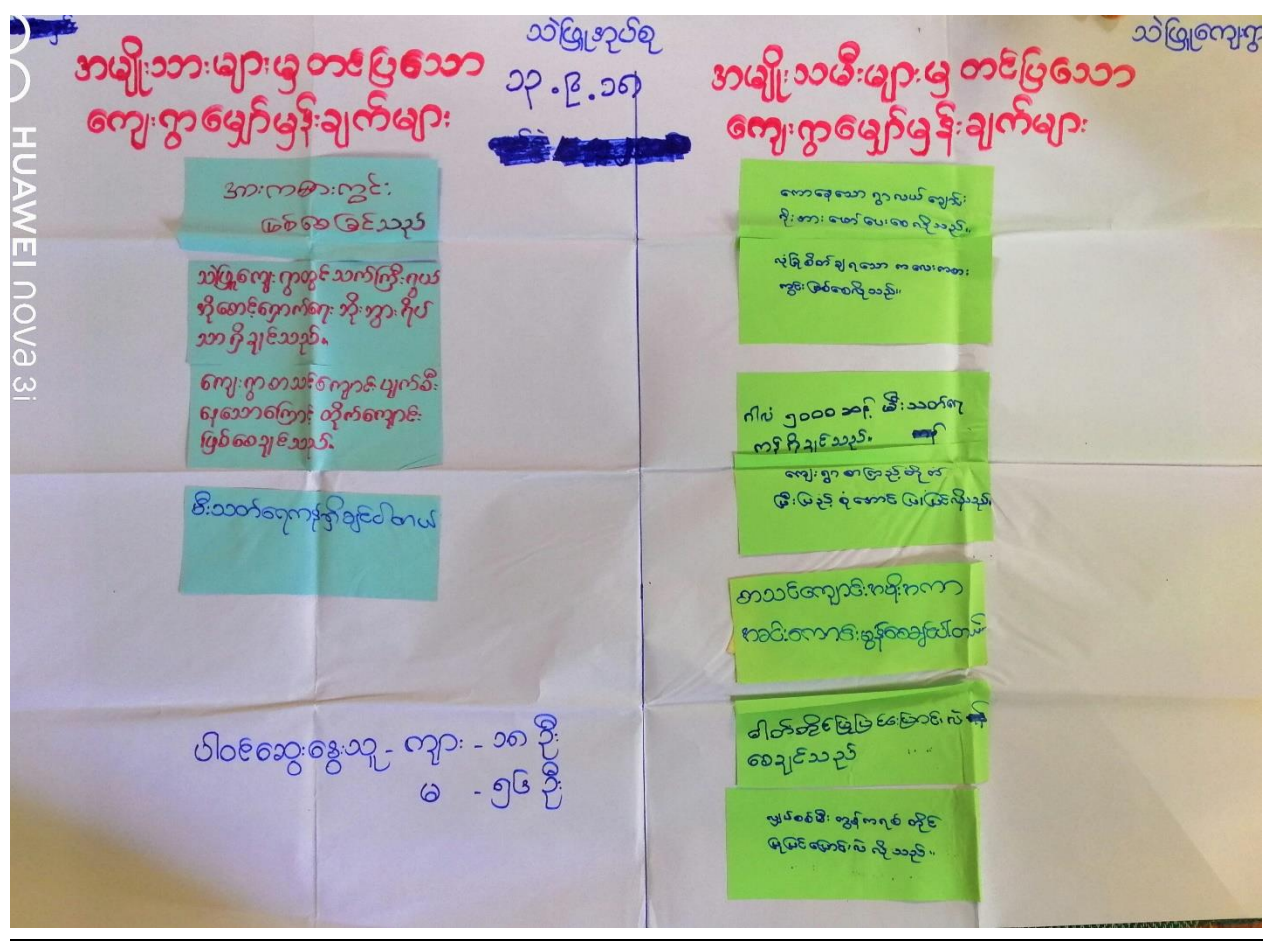 သဲဖြူအုပ်စု
သဲဖြူကျေးရွာ
၁၃.၉.၁၈
အမျိုးသားများမှ တင်ပြသော
ကျေးရွာမျှော်မှန်းချက်များ
အားကစားကွင်း
ဖြစ်စေခြင်သည်
သဲဖြူကျေးရွာတွင် သက်ကြီးရွယ်
အိုစောင့်ရှောက်ရေး ဘိုးဘွားရိပ်
သာ ရှိချင်သည်။
ကျေးရွာစာသင်ကျောင်း ပျက်စီး
နေသောကြောင့် တိုက်ကျောင်း
ဖြစ်စေချင်သည်။
မီးသတ်ရေကန်ရှိချင်ပါတယ်
ပါဝင်ဆွေးနွေးသူ - ကျား - ၁၈ ဦး
မ - ၅၆ ဦး
အမျိုးသမီးများမှ တင်ပြသော
ကျေးရွာမျှော်မှန်းချက်များ
ကောနေသော ရွာလယ်ချောင်း
ဖော်ပေးစေလိုသည်။
စိတ်ချရသော ကလေးကစား
ကွင်းဖြစ်စေလိုသည်။
ဂါလံ ၅၀၀၀ ဆန့် မီးသတ်ရေ
ကန် ရှိချင်သည်။
ကျေးရွာစာကြည့်တိုက်
ပြီးပြည့်စုံအောင် ပြုပြင်လိုသည်။
စာသင်ကျောင်းအမိုးအကာ
အခင်းကောင်းမွန်စေချင်ပါတယ်
ဓါတ်တိုင်ပြုပြင်ပြောင်းလဲ
စေချင်သည်
လျှပ်စစ်မီး ကွန်ကရစ်တိုင်
ပြုပြင်ပြောင်းလဲလိုသည်။
HUAWEI nova 3i